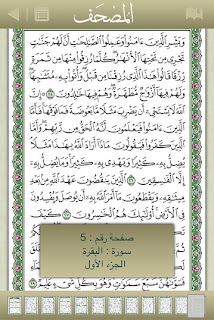 المصحف
وَبَشِّرِ ٱلَّذِينَ ءَامَنُوا۟ وَعَمِلُوا۟ ٱلصَّٰلِحَٰتِ أَنَّ لَهُمْ جَنَّٰتٍ
تَجْرِى مِن تَحْتِهَا ٱلْأَنْهَٰرُ كُلَّمَا رُزِقُوا۟ مِنْهَا مِن ثَمَرَةٍ
رِّزْقًا قَالُوا۟ هَٰذَا ٱلَّذِى رُزِقْنَا مِن قَبْلُ وَأُتُوا۟ بِهِۦ مُتَشَٰبِهًا
وَلَهُمْ فِيهَآ أَزْوَٰجٌ مُّطَهَّرَةٌ وَهُمْ فِيهَا خَٰلِدُونَ ٢٥ إِنَّ
ٱللَّهَ لَا يَسْتَحْىِۦٓ أَن يَضْرِبَ مَثَلًا مَّا بَعُوضَةً فَمَا فَوْقَهَا فَأَمَّا
ٱلَّذِينَ ءَامَنُوا۟ فَيَعْلَمُونَ أَنَّهُ ٱلْحَقُّ مِن رَّبِّهِمْ وَأَمَّا
ٱلَّذِينَ كَفَرُوا۟ فَيَقُولُونَ مَاذَآ أَرَادَ ٱللَّهُ بِهَٰذَا مَثَلًا
يُضِلُّ بِهِۦ كَثِيرًا وَيَهْدِى بِهِۦ كَثِيرًا وَمَا يُضِلُّ بِهِۦٓ
إِلَّا ٱلْفَٰسِقِينَ ٢٦ ٱلَّذِينَ يَنقُضُونَ عَهْدَ ٱللَّهِ مِنۢ بَعْدِ
مِيثَٰقِهِۦ وَيَقْطَعُونَ مَآ أَمَرَ ٱللَّهُ بِهِۦٓ أَن يُوصَلَ وَيُفْسِدُونَ
فِى ٱلْأَرْضِ أُو۟لَٰٓئِكَ هُمُ ٱلْخَٰسِرُونَ ٢٧ كَيْفَ
صفحة رقم : 5
سورة : البقرة
الجزء الأول
فَسَوَّىٰهُنَّ سَبْعَ سَمَٰوَٰتٍ وَهُوَ بِكُلِّ شَىْءٍ عَلِيمٌ ٢٩